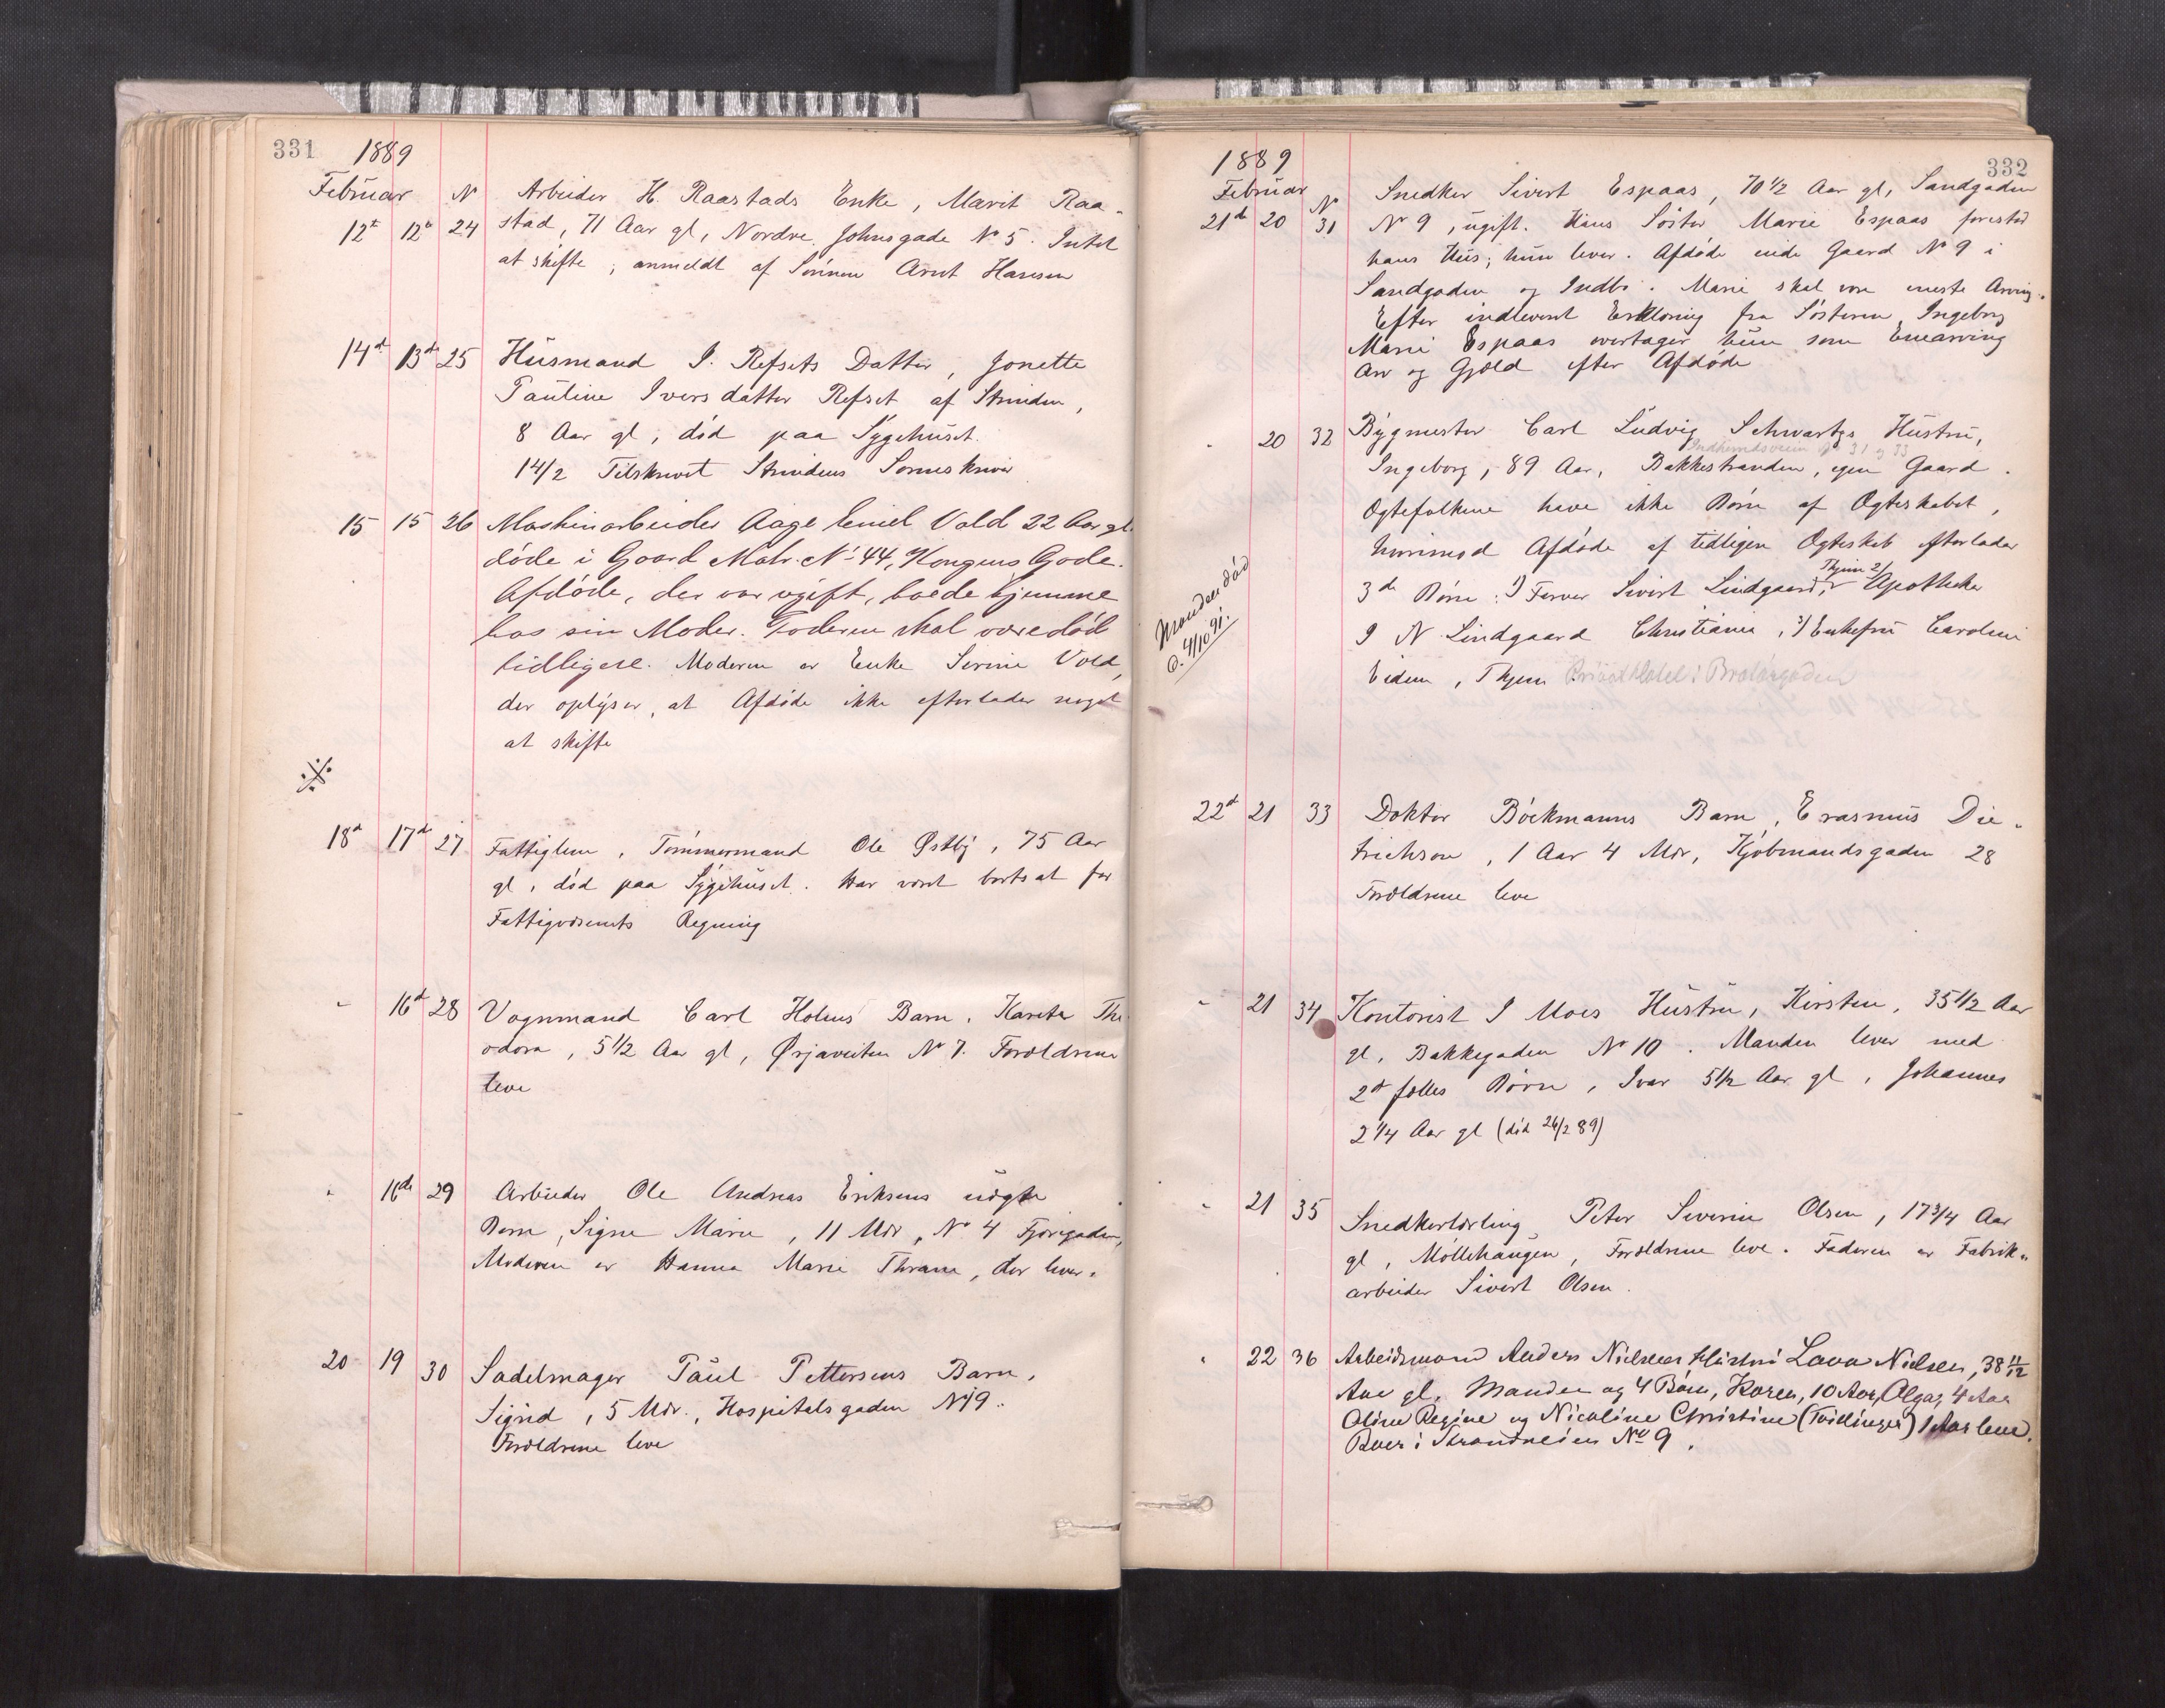 331 1889
Februar N Arbeider H. Raastads Enke, Marit Raa-
12te 12te 24 stad, 71 Aar gl, Nordre Johnsgade No 5. Intet
at skifte; anmeldt af Sønnen Arnt Hansen
14d 13de 25 Husmand I. Refsets Datter, Jonette
Pauline Iversdatter Refset af Strinden,
8 Aar gl, død paa Sygehuset.
14/2 Tilskrevet Strindens Sorenskriver
15 15 26 Maskinarbeider Aage Emil Vold 22 Aar gl.
døde i Gaard Matr. No 44, Kongens Gade.
Afdøde, der var ugift, boede hjemme
hos sin Moder. Faderen skal være død
tidligere. Moderen er Enke Serine Vold,
der oplyser, at Afdøde ikke efterlader noget
at skifte
18d 17de 27 Fattiglem, Tømmermand Ole Østby, 75 Aar
gl, død paa Sygehuset. Har været bortsat for
Fattigvæsenets Regning
" 16d 28 Vognmand Carl Holms Barn, Karita The-
odora, 5 1/2 Aar gl, Ørjaveiten No 7. Forældrene
leve
" 16de 29 Arbeider Ole Andreas Eriksens uægte
Barn, Signe Marie, 11 Mdr, No 4 Fjæregaden,
Moderen er Hanna Marie Thrane, der lever.
20 19 30 Sadelmager Paul Pettersens Barn,
Sigrid, 5 Mdr., Hospitalsgaden No 9.
Forældrene leve
1889 332
Februar N Snedker Sivert Espaas, 70 1/2 Aar gl, Sandgaden
21d 20 31 No 9, ugift. Hans Søster Marie Espaas forestod
hans Hus; hun lever. Afdøde eiede Gaard No 9 i
Sandgaden og Indbo. Marie skal være eneste Arving.
Efter indleveret Erklæring fra Søsteren Ingeborg
Marie Espaas overtager hun som Enearving
Arv og Gjæld efter Afdøde
" 20 32 Bygmester Carl Ludvig Schwartz's Hustru,
Indherredsveien No 31 og 33
Ingeborg, 89 Aar, Bakkestranden, egen Gaard.
Ægtefolkene have ikke Børn af Ægteskabet,
hvorimod Afdøde af tidligere Ægteskab efterlader
3de Børn: 1) Farver Sivert Lindgaard, Thjem 2) Apotheker
I N Lindgaard Christiania, 3) Enkefru Caroline
Eidem, Thjem Privat Hotel i Bratørgaden
Manden død
d. 4/10 91.
22d 21 33 Doktor Bøckmanns Barn, Erasmus Die-
trichson, 1 Aar 4 Mdr, Kjøbmandsgaden 28
Forældrene leve
" 21 34 Kontorist I Moes Hustru, Kirsten, 35 1/2 Aar
gl, Bakkegaden No 10. Manden lever med
2d fælles Børn, Ivar 5 1/2 Aar gl, Johannes
2 1/4 Aar gl (død 26/2 89)
" 21 35 Snedkerlærling Peter Severin Olsen, 17 3/4 Aar
gl, Møllehaugen, Forældrene leve. Faderen er Fabrik-
arbeider Sivert Olsen.
" 22 36 Arbeidsmand Anders Nielsens Hustru Lava Nielsen, 38 11/12
Aar gl. Manden og 4 Børn, Karen, 10 Aar, Olga, 4 Aar
Oline Regine og Nicoline Christine (Tvillinger) 1 Aar leve.
Boer i Strandveien No 9.